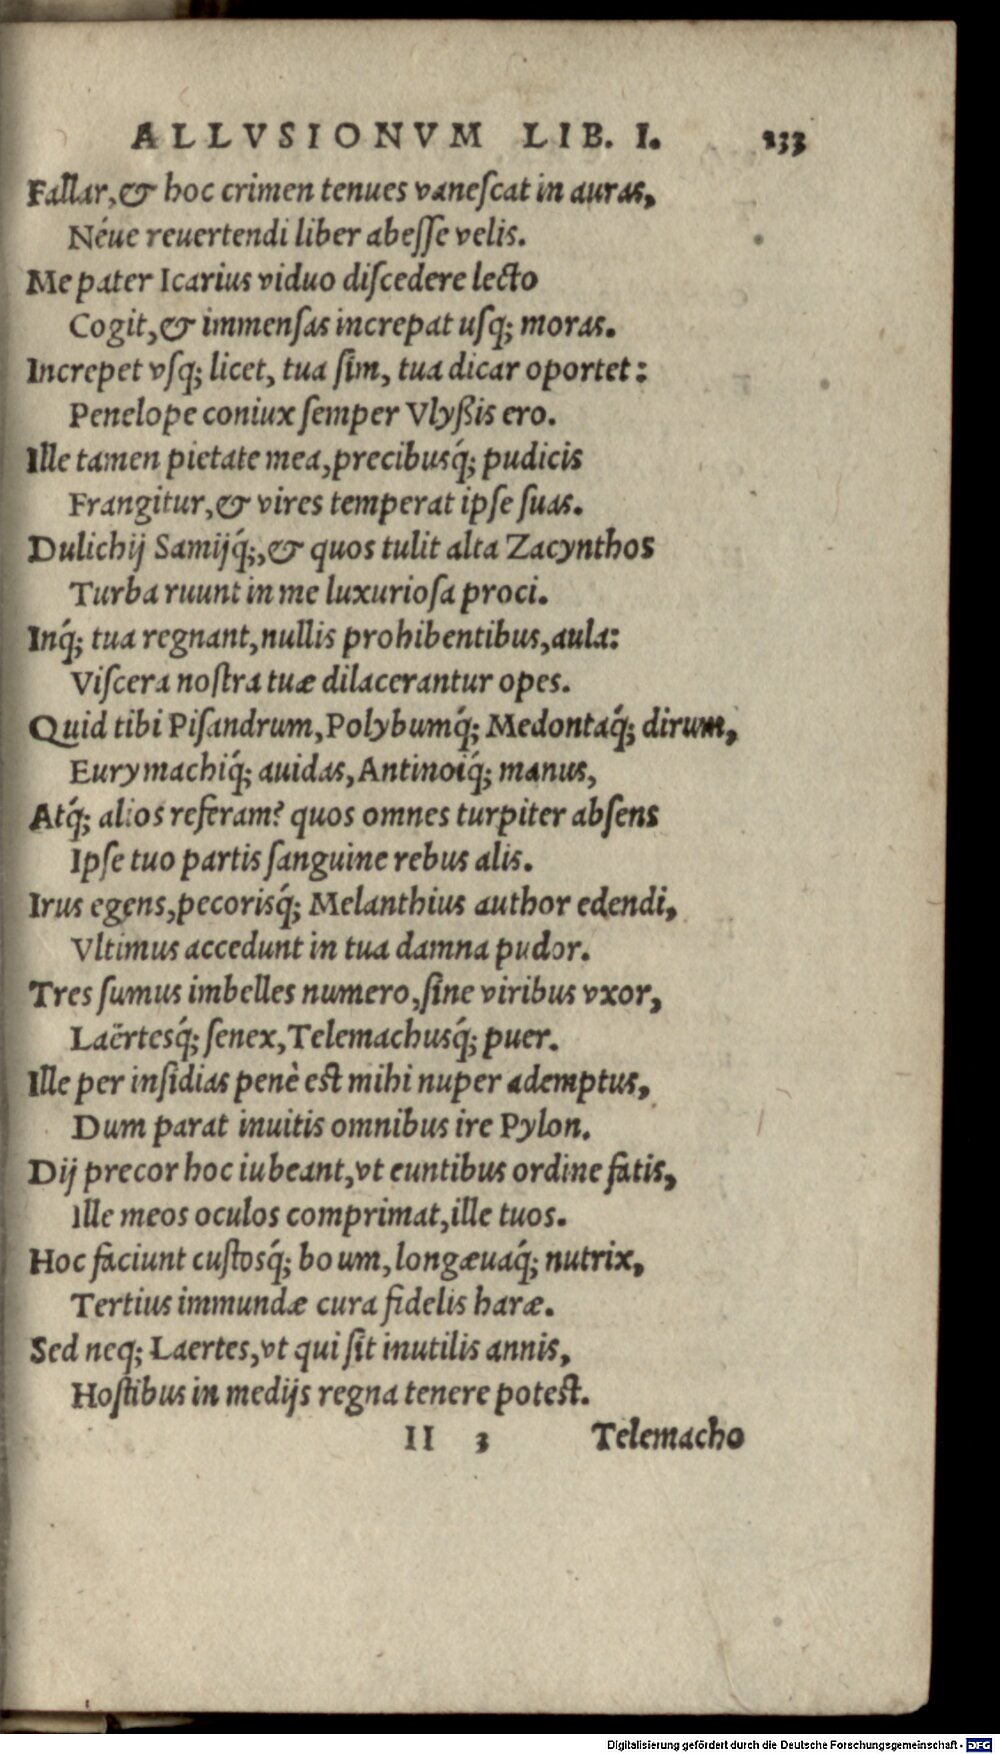 ALLVSIONVM LIB. I. 233
Fallar, & hoc crimen tenues vaneſcat in auras,
Néue reuertendi liber abeſſe velis.
Me pater Icarius viduo diſcedere lecto
Cogit, & immenſas increpat uſq; moras.
Increpet vſq; licet, tua ſim, tua dicar oportet:
Penelope coniux ſemper Vlyßis ero.
Ille tamen pietate mea, precibusq́; pudicis
Frangitur, & vires temperat ipſe ſuas.
Dulichij Samijq́;, & quos tulit alta Zacynthos
Turba ruunt in me luxurioſa proci.
Inq́; tua regnant, nullis prohibentibus, aula:
Viſcera noſtra tuæ dilacerantur opes.
Quid tibi Piſandrum, Polybumq́; Medontaq́; dirum,
Eurymachiq́; auidas, Antinoiq́; manus,
Atq́; alios referam? quos omnes turpiter abſens
Ipſe tuo partis ſanguine rebus alis.
Irus egens, pecorisq́; Melanthius author edendi,
Vltimus accedunt in tua damna pudor.
Tres ſumus imbelles numero, ſine viribus vxor,
Laërtesq́; ſenex, Telemachusq́; puer.
Ille per inſidias penè eſt mihi nuper ademptus,
Dum parat inuitis omnibus ire Pylon.
Dij precor hoc iubeant, vt euntibus ordine fatis,
Ille meos oculos comprimat, ille tuos.
Hoc faciunt cuſtosq́; boum, longæuaq́; nutrix,
Tertius immundæ cura fidelis haræ.
Sed neq; Laertes, vt qui ſit inutilis annis,
Hoſtibus in medijs regna tenere poteſt.
II 3 Telemacho
Digitalisierung gefördert durch die Deutsche Forschungsgemeinschaft - DFG